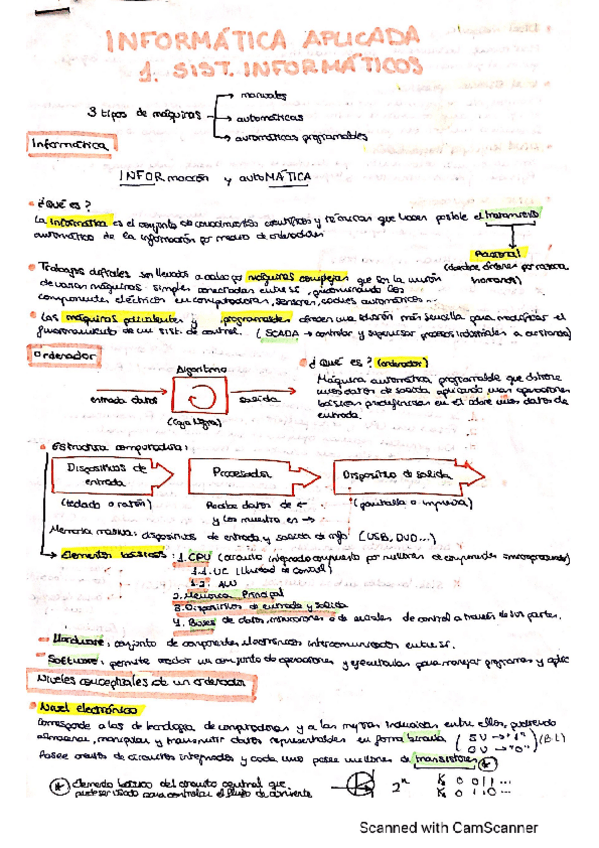 INFORMÁTICA APLICADA
1. SIST. INFORMÁTICOS
3 tipos de máquinas
→ manuales
→ automáticas
→ automáticas programables
Informática
INFORmación y autoMÁTICA
¿QUÉ es?
La informática es el conjunto de conocimientos científicos y técnicas que hacen posible el tratamiento
automático de la información por medio de ordenadores
Racional
(dar órdenes por razona
humanos)
Trabajos digitales son llevados a cabo por máquinas complejas que son la unión
de varias máquinas simples conectadas entre sí,
componentes eléctricos en computadoras, sensores, coches automáticos...
Las máquinas polivalentes y programables ofrecen una solución más sencilla para modificar el
funcionamiento de un sist. de control. (SCADA → controlar y supervisar procesos industriales a distancia)
Ordenador
Algoritmo
entrada datos
salida
(Caja Negra)
¿Qué es? (ordenador)
Máquina automática programable que obtiene
unos datos de salida, aplicando unas operaciones
básicas predefinidas en él sobre unos datos de
entrada.
Estructura computadora:
Dispositivos de
entrada
Procesador
Dispositivo de salida
(teclado o ratón)
Recibe datos de ←
y los muestra en →
(pantalla o impresora)
Memoria masiva: dispositivos de entrada y salida de info (USB, DVD...)
Elementos básicos: 1. CPU (circuito integrado compuesto por millones de componentes )
1.1. UC (Unidad de Control)
1.2. ALU
2. Memoria Principal
3. Dispositivos de entrada y salida
4. Buses de datos, instrucciones o de señales de control a través de sus partes.
Hardware: conjunto de componentes electrónicos intercomunicados entre sí.
Software: permite realizar un conjunto de operaciones y ejecutarlas para manejar programas y aplic
Niveles conceptuales de un ordenador
Nivel electrónico
Corresponde a las de tecnología de computadoras y a las mejoras inducidas entre ellos, pudiendo
almacenar, manipular y transmitir datos representables en forma binaria (5V → "1"
0V → "0") (B.L)
Posee cientos de circuitos integrados y cada uno posee millones de transistores *
* Elemento básico del circuito central que
puede ser usado para controlar el flujo de corriente
2ⁿ
K 0 0 1 1 ...
K 0 1 1 0 ...
Scanned with CamScanner